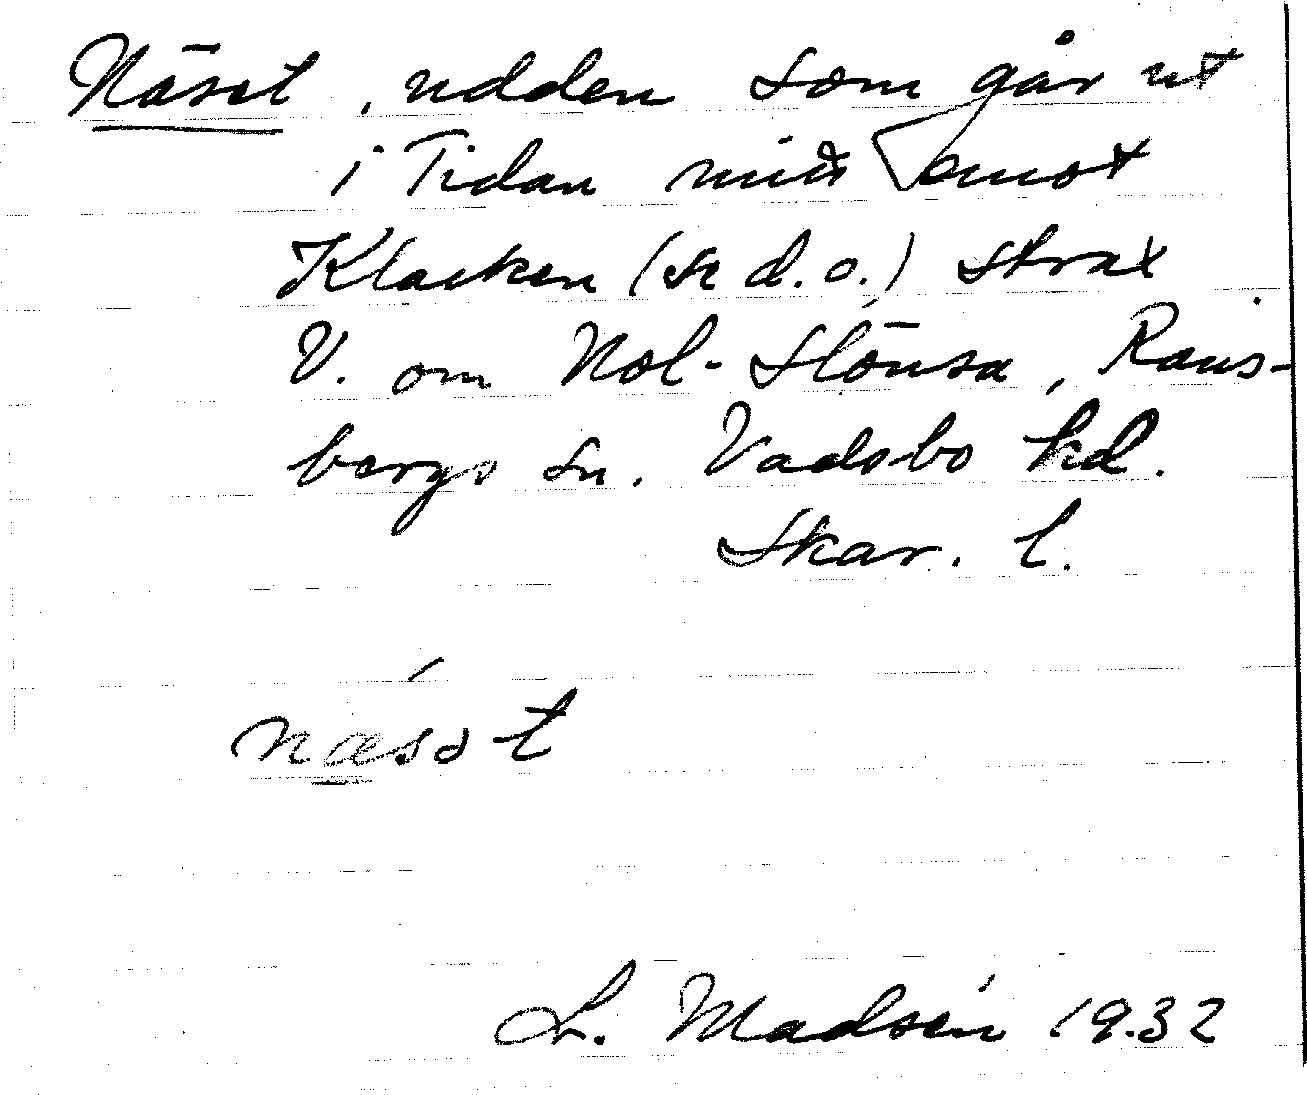 Näset, udden som går ut
i Tidan mitt emot
Klacken (se d.o.) strax
V. om Nol-Slönsa, Rans-
bergs sn. Vadsbo hd.
Skar. l.
næsət
L. Madsén 1932